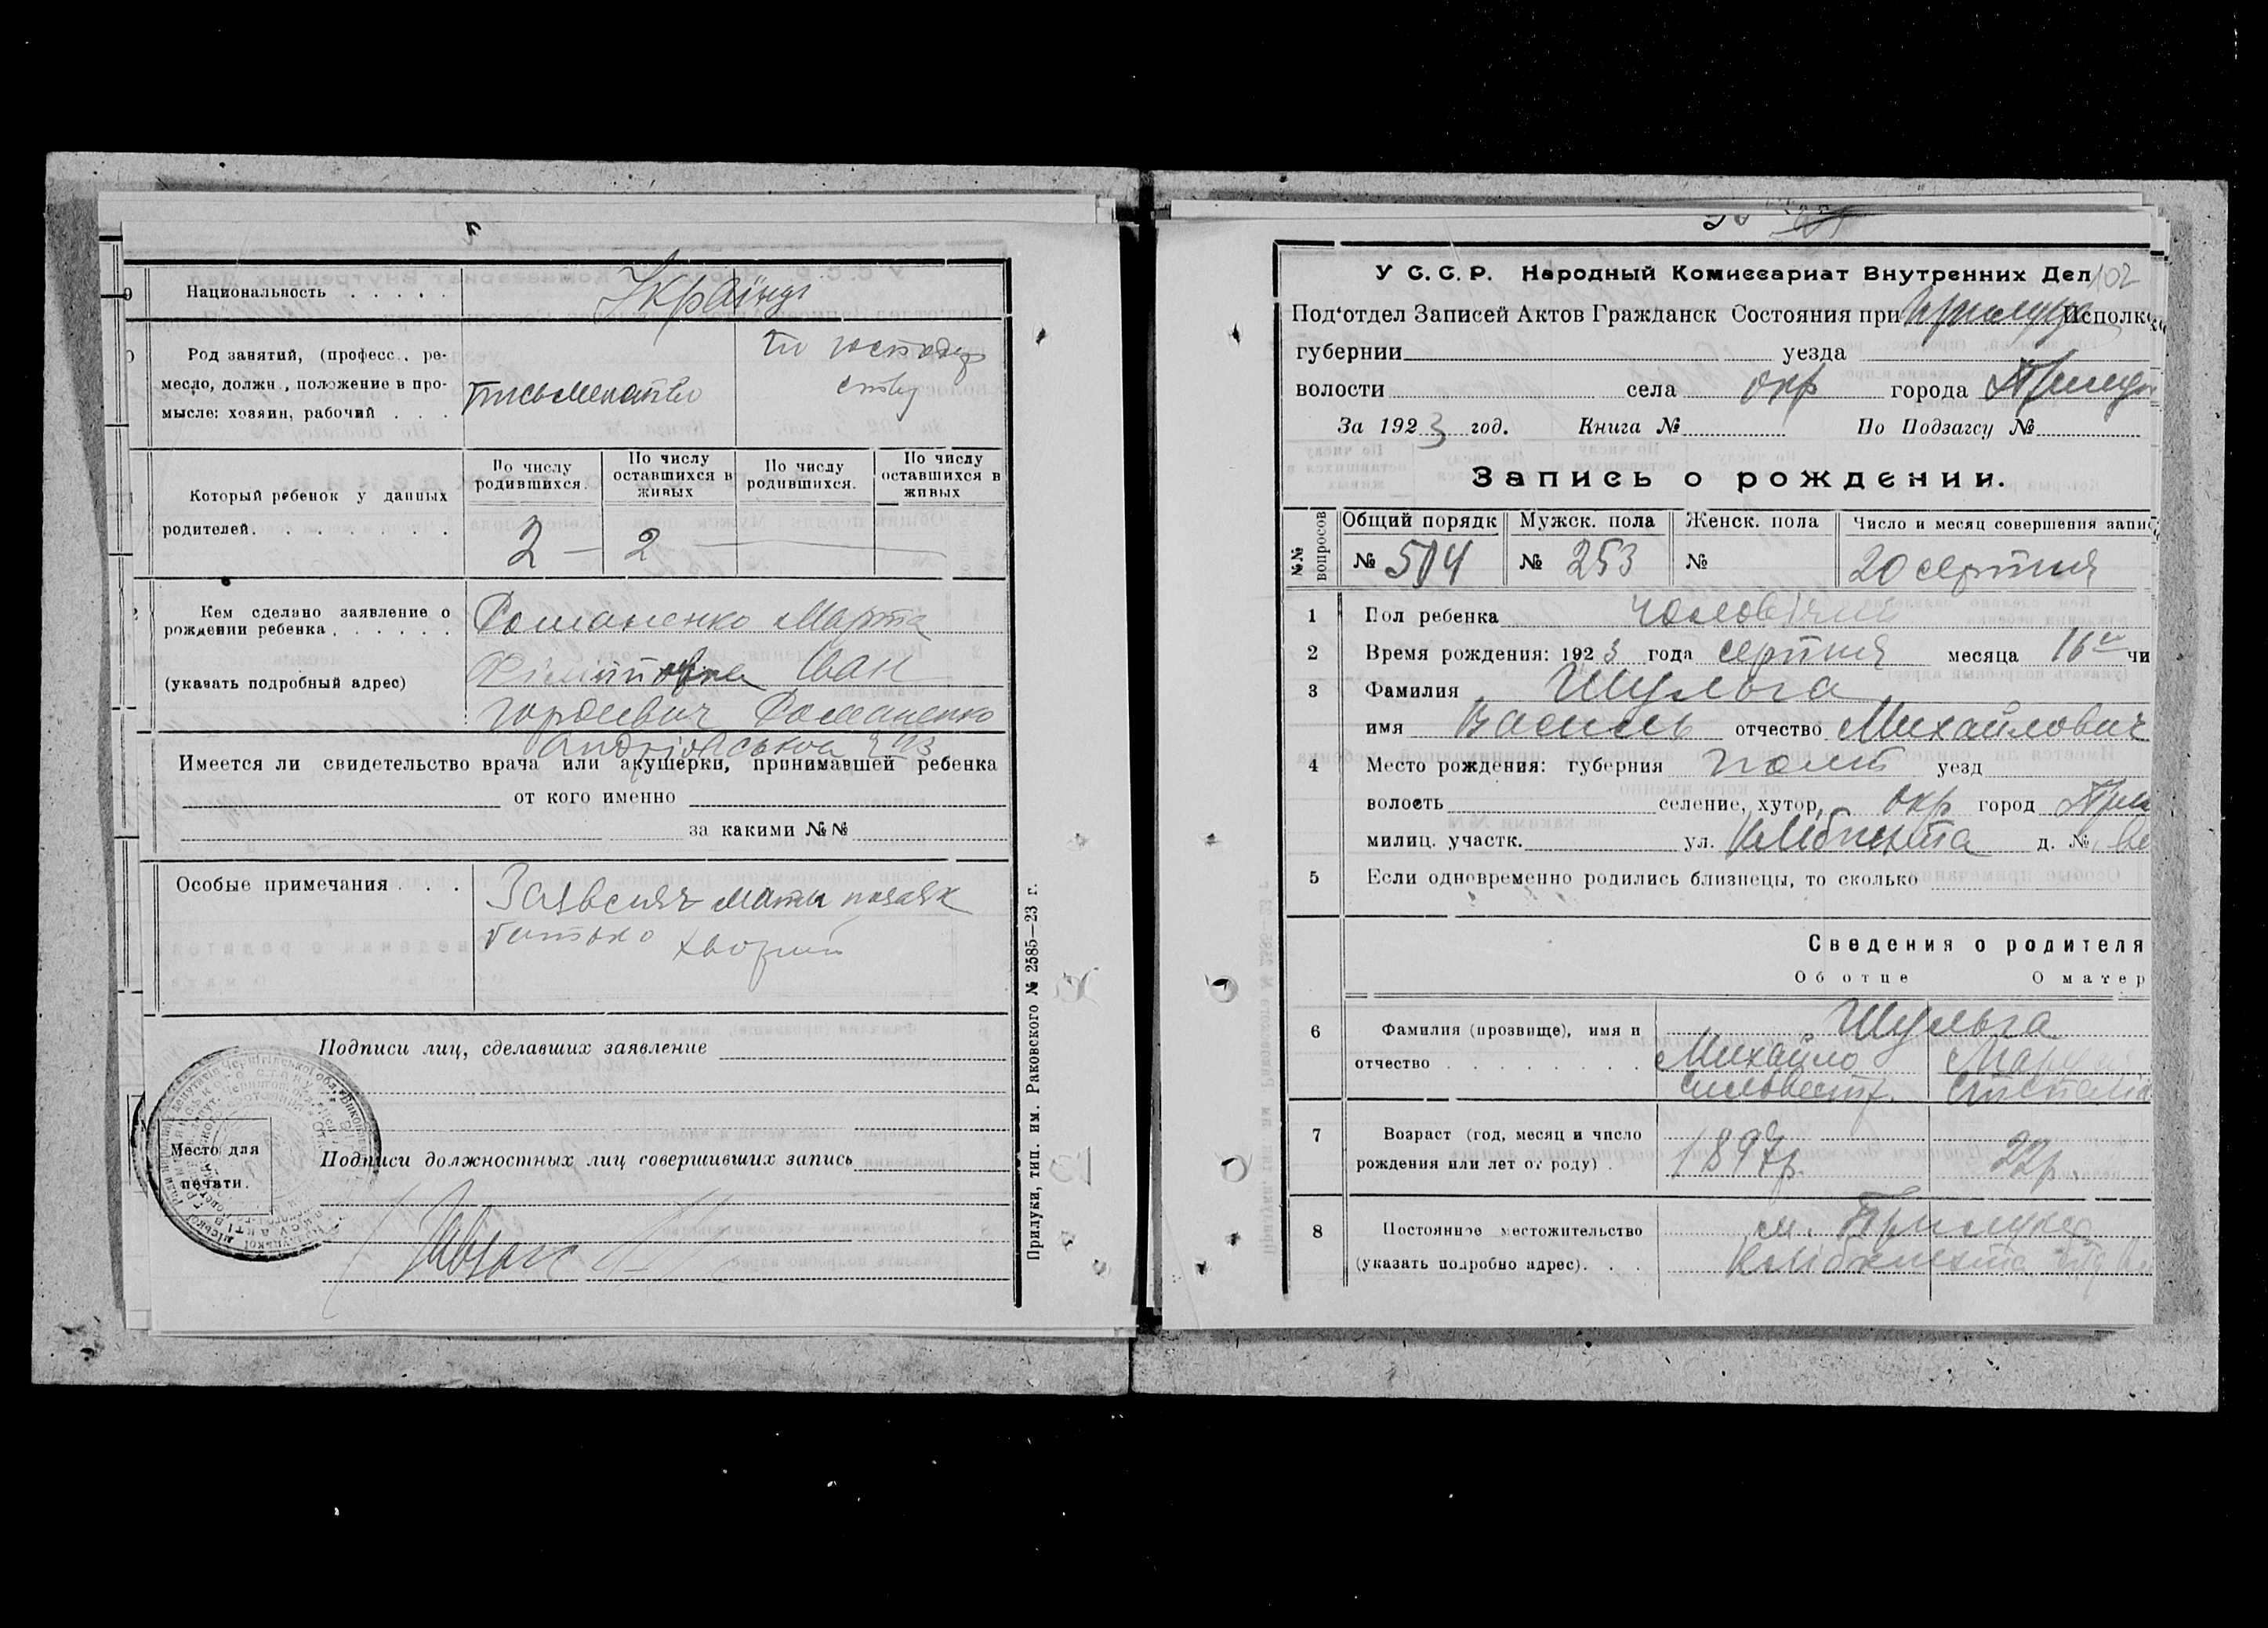 Национальность . . . . . Українці
Род занятий, (професс., ре-
месло, должн., положение в про-
мысле: хозяин, рабочий . . .
письменство
по господар
ству
Который ребенок у данных
родителей. . . . . . .
По числу родившихся.
По числу оставшихся в живых
По числу родившихся.
По числу оставшихся в живых
2 — 2
Кем сделано заявление о
рождении ребенка . . . . . .
(указать подробный адрес)
Романенко Марта
Іван
Гордієвич Романенко
Андріївська
Имеется ли свидетельство врача или акушерки, принимавшей ребенка
от кого именно
за какими №№
Особые примечания . . .
Заявляє мати позаяк
батько хворий
Подписи лиц, сделавших заявление
Место для
печати.
Подписи должностных лиц совершивших запись
Прилуки, тип. им. Раковского № 2585—23 г.
102
У С. С. Р. Народный Комиссариат Внутренних Дел
Под'отдел Записей Актов Гражданск Состояния при Прилуцк Исполк
губернии уезда
волости села окр города Прилуки
За 1923 год. Книга № По Подзагсу №
Запись о рождении.
№№ вопросов
Общий порядк
№ 504
Мужск. пола
№ 253
Женск. пола
№
Число и месяц совершения запис
20 серпня
1 Пол ребенка чоловічий
2 Время рождения: 1923 года серпня месяца 16 чи
3 Фамилия Шульга
имя Василь отчество Михайлович
4 Место рождения: губерния Полт уезд
волость селение, хутор, окр город Прил
милиц. участк. ул. д. №
5 Если одновременно родились близнецы, то сколько
Сведения о родителя
Об отце О матер
6 Фамилия (прозвище), имя и
отчество . . . . . . . . .
Шульга
Михайло
Сильвестр.
Мар
7 Возраст (год, месяц и число
рождения или лет от роду) .
1897р.
22р.
8 Постоянное местожительство
(указать подробно адрес). . .
м. Прилуки